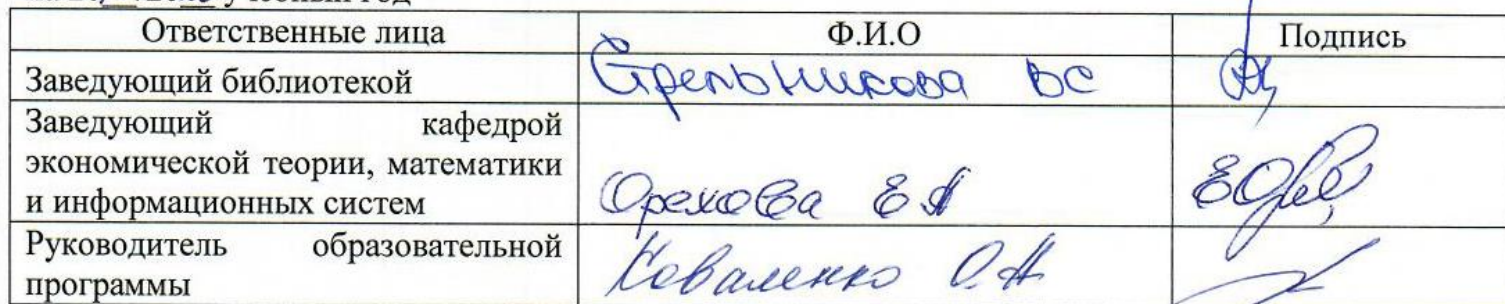 Ответственные лица Ф.И.О Подпись
Заведующий библиотекой Стрельникова ВС
Заведующий кафедрой
экономической теории, математики
и информационных систем Орехова Е А
Руководитель образовательной
программы Коваленко О.А